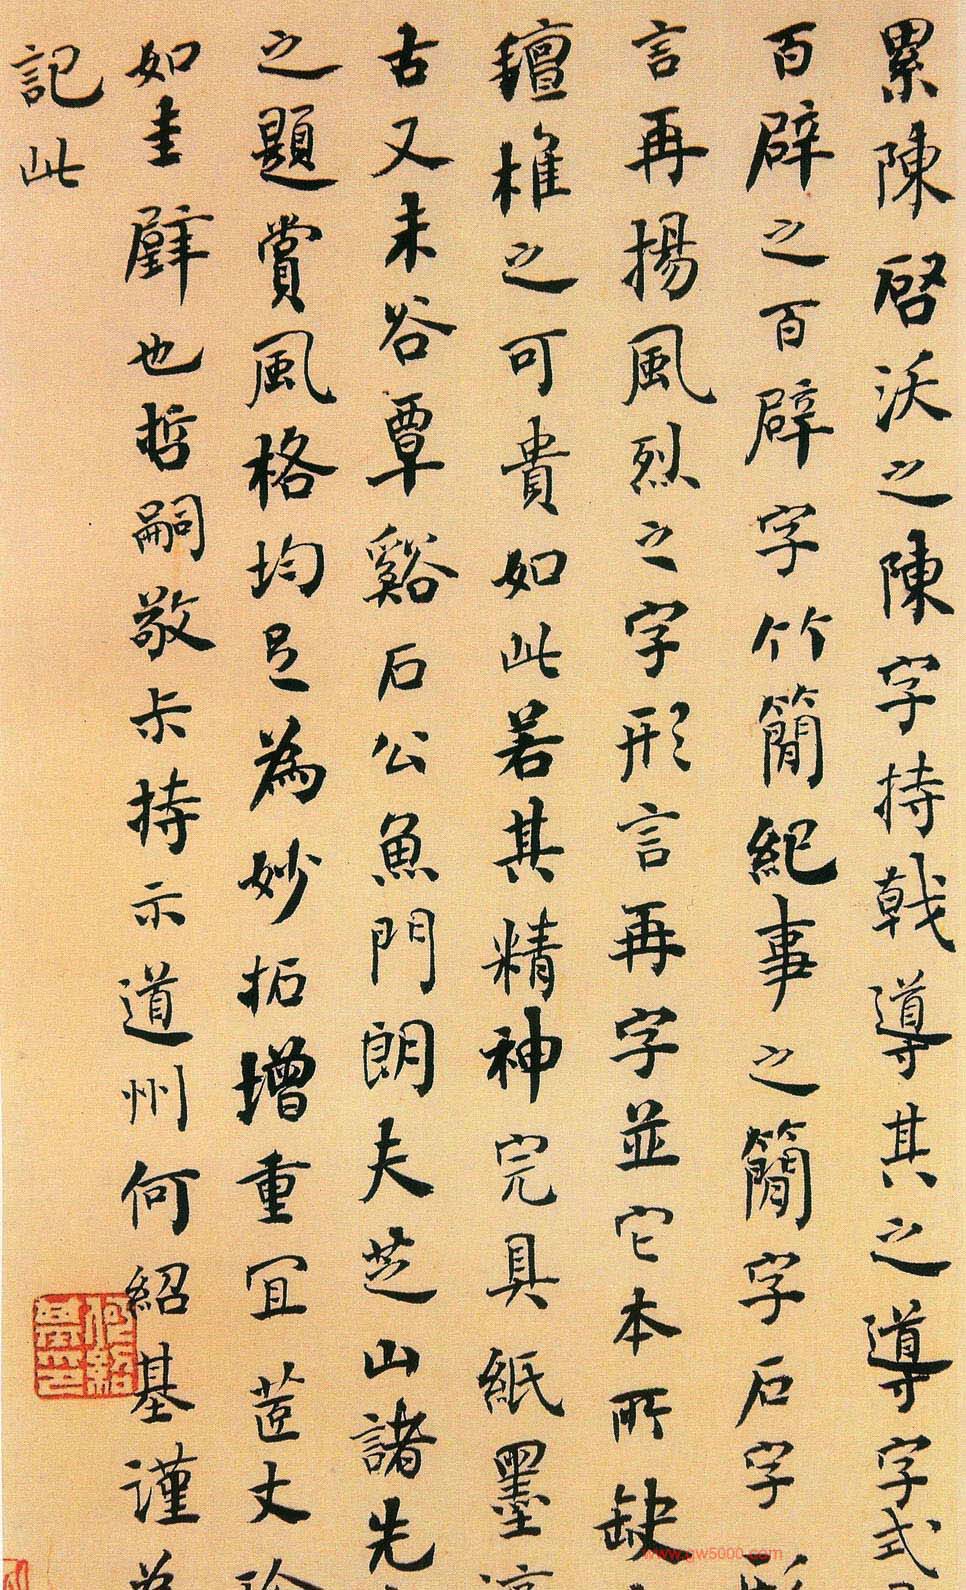 累陳啓沃之陳字持戟導其之導字式
百辟之百辟字竹簡紀事之簡字石字形
言再揚風烈之字形言再字並它本所缺
氊椎之可貴如此若其精神完具紙墨
古又未谷覃谿石公魚門朗夫芝山諸先
之題賞風格均足為妙拓增重宜荳丈珍
如圭璧也哲嗣敬尗持示道州何紹基謹
記此
www.gw5000.com